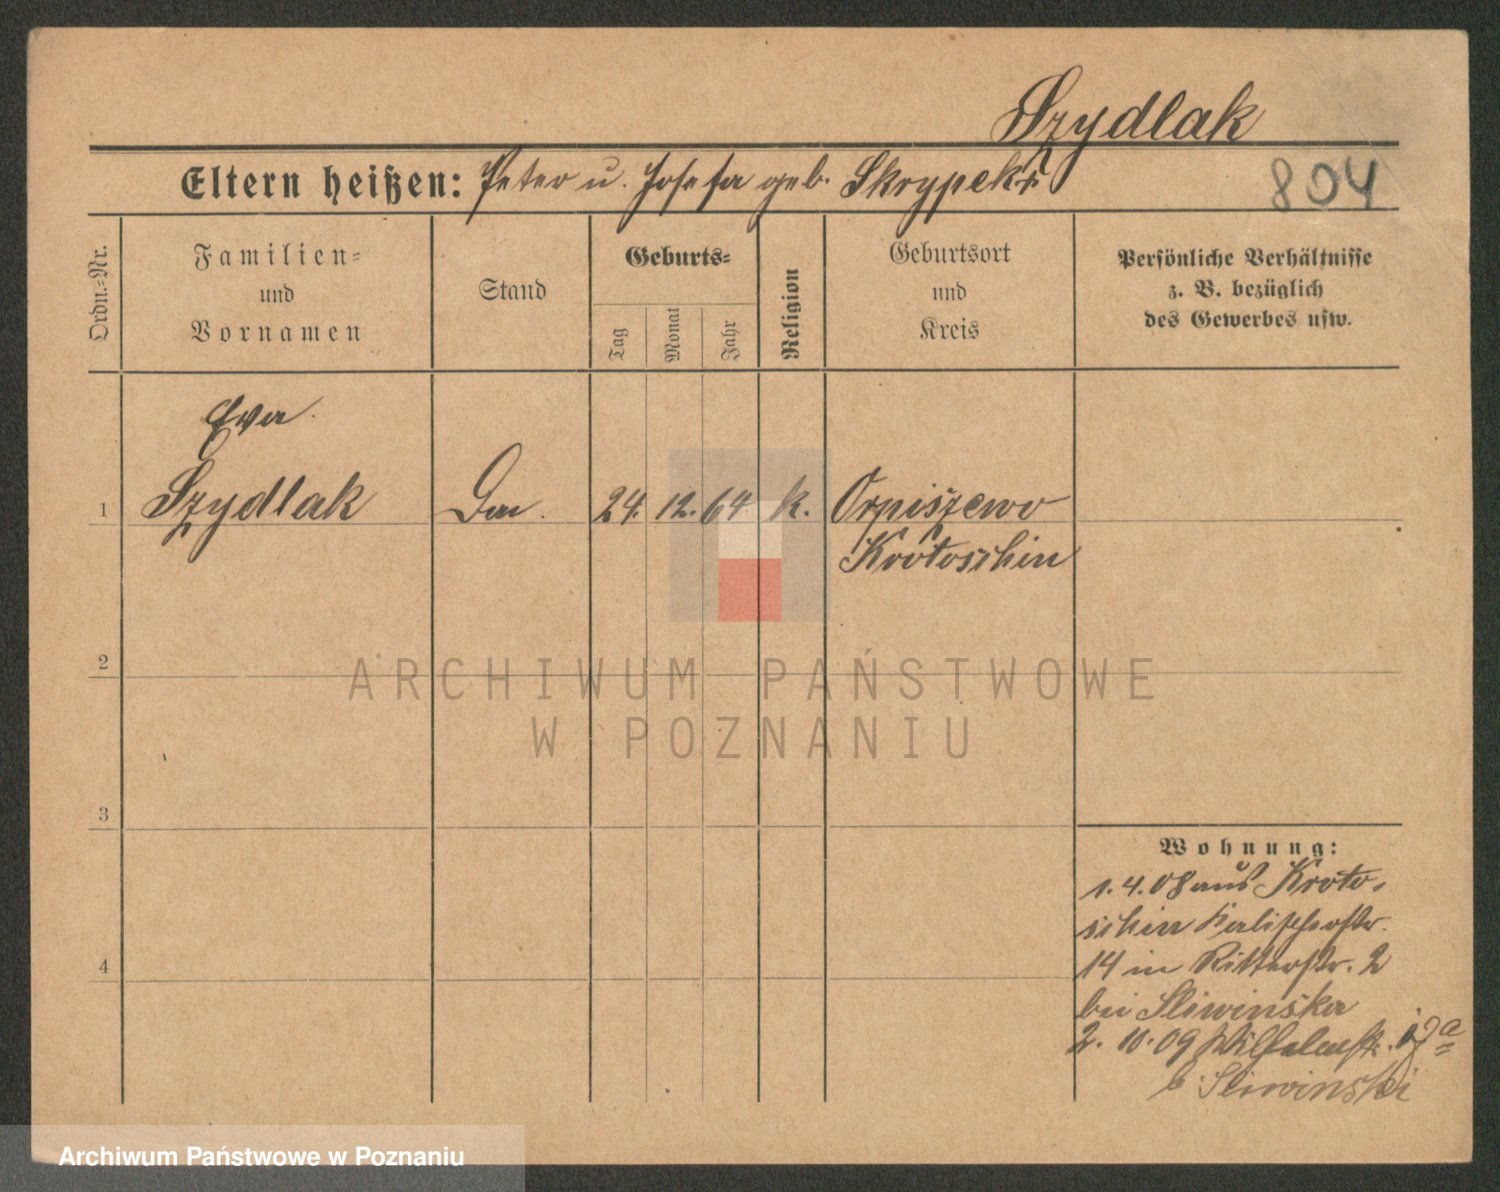 Szydlak
Eltern heißen: Peter u. Josefa geb. Skrypek
804
Ordn.-Nr.
Familien-
und
Vornamen
Stand
Geburts-
Tag
Monat
Jahr
Religion
Geburtsort
und
Kreis
Persönliche Verhältnisse
z. B. bezüglich
des Gewerbes usw.
Eva
1 Szydlak 24. 12. 64 k. Orpiszewo
Krotoschin
2
3
4
ARCHIWUM PAŃSTWOWE
W POZNANIU
Wohnung:
1. 4. 08 aus Kroto-
schin Kalischerstr.
14 in Ritterstr. 2
bei Sliwinska
2. 10. 09 Wilhelmstr. 17a
b. Sliwinski
Archiwum Państwowe w Poznaniu